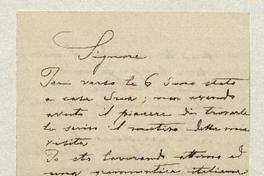 Signore
Ieri verso le 6 sono stato
a casa Sua; non avendo
avuto il piacere di trovarla
le scrivo il motivo della mia
visita
Io sto lavorando attorno ad
una grammatica italiana